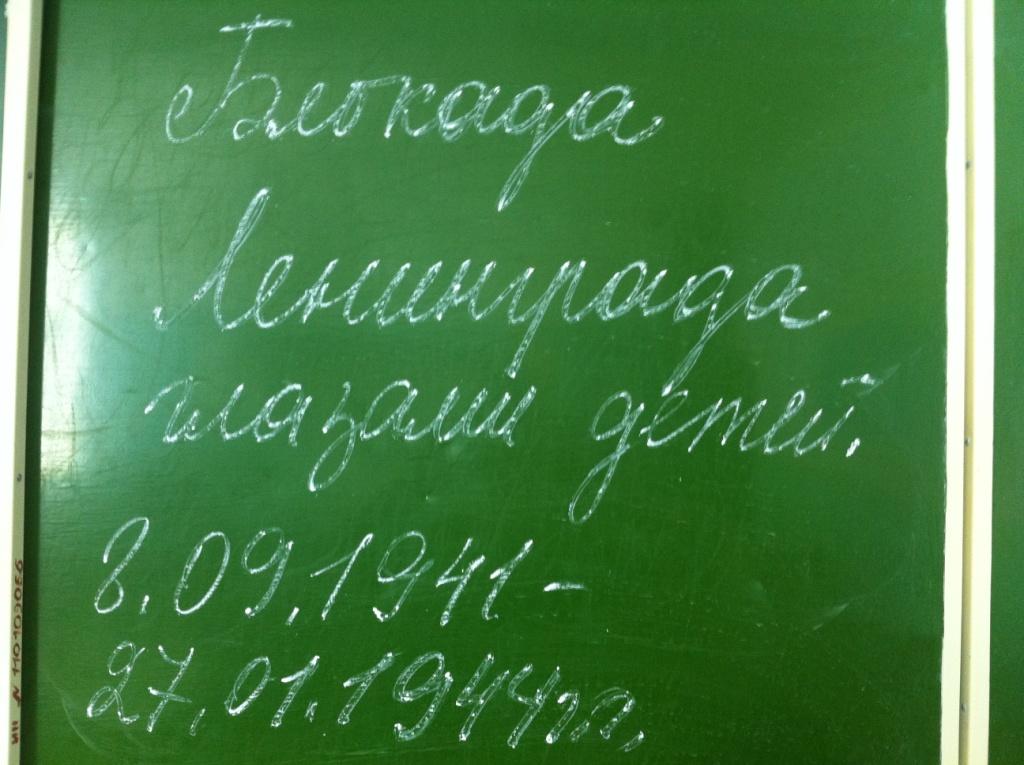 Блокада
Ленинграда
глазами детей.
8.09.1941 -
27.01.1944гг.